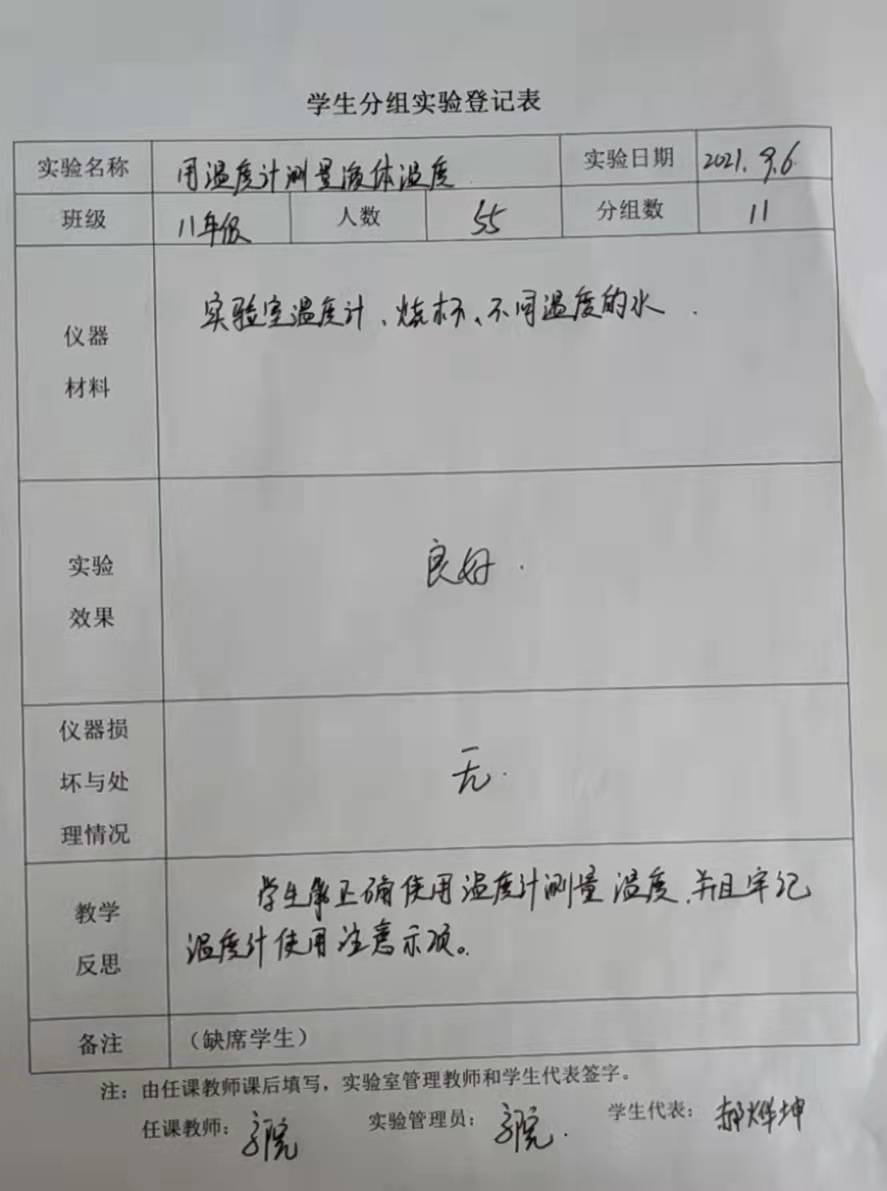 学生分组实验登记表
实验名称 用温度计测量液体温度 实验日期 2021.9.6
班级 八年级 人数 55 分组数 11
仪器
材料
实验室温度计、烧杯、不同温度的水.
实验
效果
良好.
仪器损
坏与处
理情况
无.
教学
反思
学生能正确使用温度计测量温度,并且牢记
温度计使用注意示项。
备注 (缺席学生)
注:由任课教师课后填写,实验室管理教师和学生代表签字。
任课教师: 实验管理员: 学生代表:郝烨坤